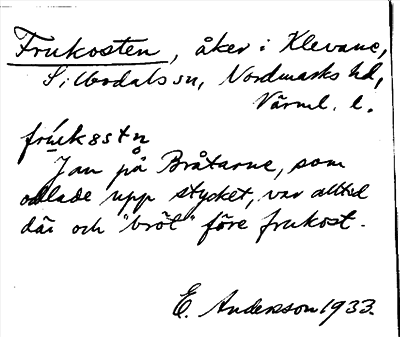 Frukosten, åker i Klevane,
Silbodals sn, Nordmarks hd,
Värml. l.
frúk8stn̥
Jan på Bråtarne, som
odlade upp stycket, var alltid
där och "bröt" före frukost.
E. Andersson 1933.